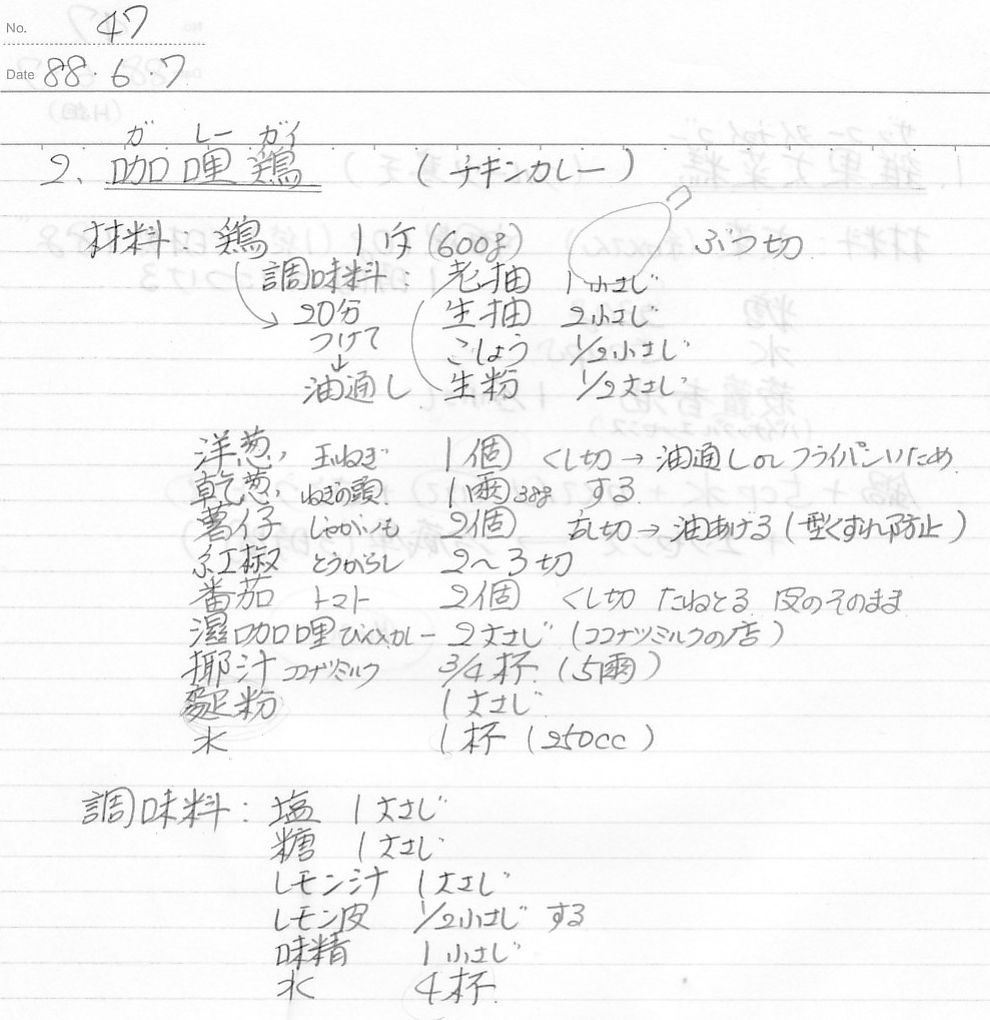 No. 47
Date 88・6・7
ガ レー ガイ
2、咖喱鶏 (チキンカレー)
材料：鶏 1斤 (600g) ぶつ切
調味料：老抽 1小さじ
20分 生抽 2小さじ
つけて こしょう 1/2小さじ
↓
油通し 生粉 1/2大さじ
洋葱, 玉ねぎ 1個 くし切→油通しorフライパンいため
乾葱, ねぎの頭 1両38g する
薯仔 じゃがいも 2個 乱切→油あげる(型くずれ防止)
紅椒 とうがらし 2〜3切
番茄 トマト 2個 くし切 たねとる 皮のそのまま
濕咖喱 びん×カレー 2大さじ (ココナツミルクの店)
椰汁 ココナツミルク 3/4杯 (5両)
粉 1大さじ
水 1杯 (250cc)
調味料：塩 1大さじ
糖 1大さじ
レモン汁 1大さじ
レモン皮 1/2小さじ する
味精 1小さじ
水 4杯